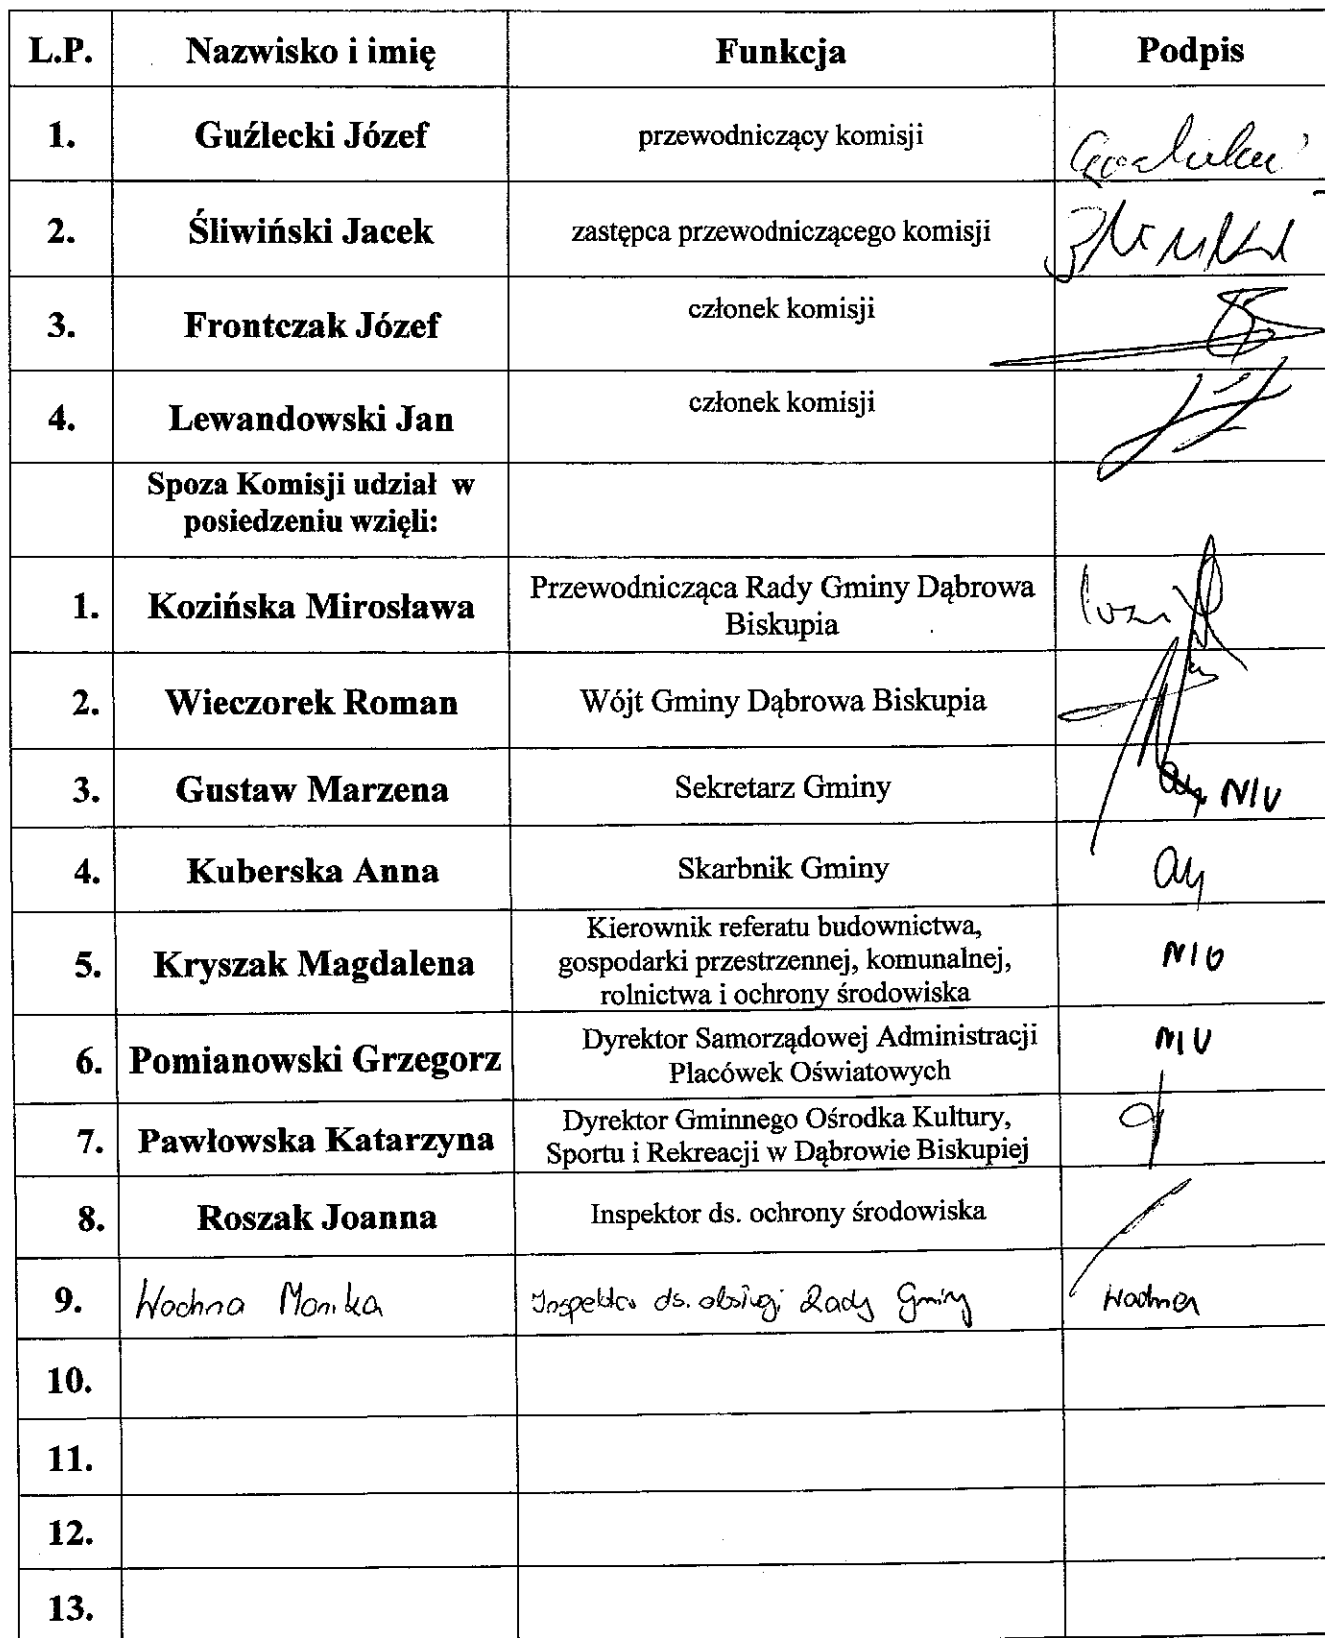 L.P. Nazwisko i imię Funkcja Podpis
1. Guźlecki Józef przewodniczący komisji
2. Śliwiński Jacek zastępca przewodniczącego komisji
3. Frontczak Józef członek komisji
4. Lewandowski Jan członek komisji
Spoza Komisji udział w
posiedzeniu wzięli:
1. Kozińska Mirosława Przewodnicząca Rady Gminy Dąbrowa
Biskupia
2. Wieczorek Roman Wójt Gminy Dąbrowa Biskupia
3. Gustaw Marzena Sekretarz Gminy N/U
4. Kuberska Anna Skarbnik Gminy
5. Kryszak Magdalena Kierownik referatu budownictwa,
gospodarki przestrzennej, komunalnej,
rolnictwa i ochrony środowiska
6. Pomianowski Grzegorz Dyrektor Samorządowej Administracji
Placówek Oświatowych
7. Pawłowska Katarzyna Dyrektor Gminnego Ośrodka Kultury,
Sportu i Rekreacji w Dąbrowie Biskupiej
8. Roszak Joanna Inspektor ds. ochrony środowiska
9. Wochna Monika Inspektor ds. obsługi Rady Gminy Wochna
10.
11.
12.
13.